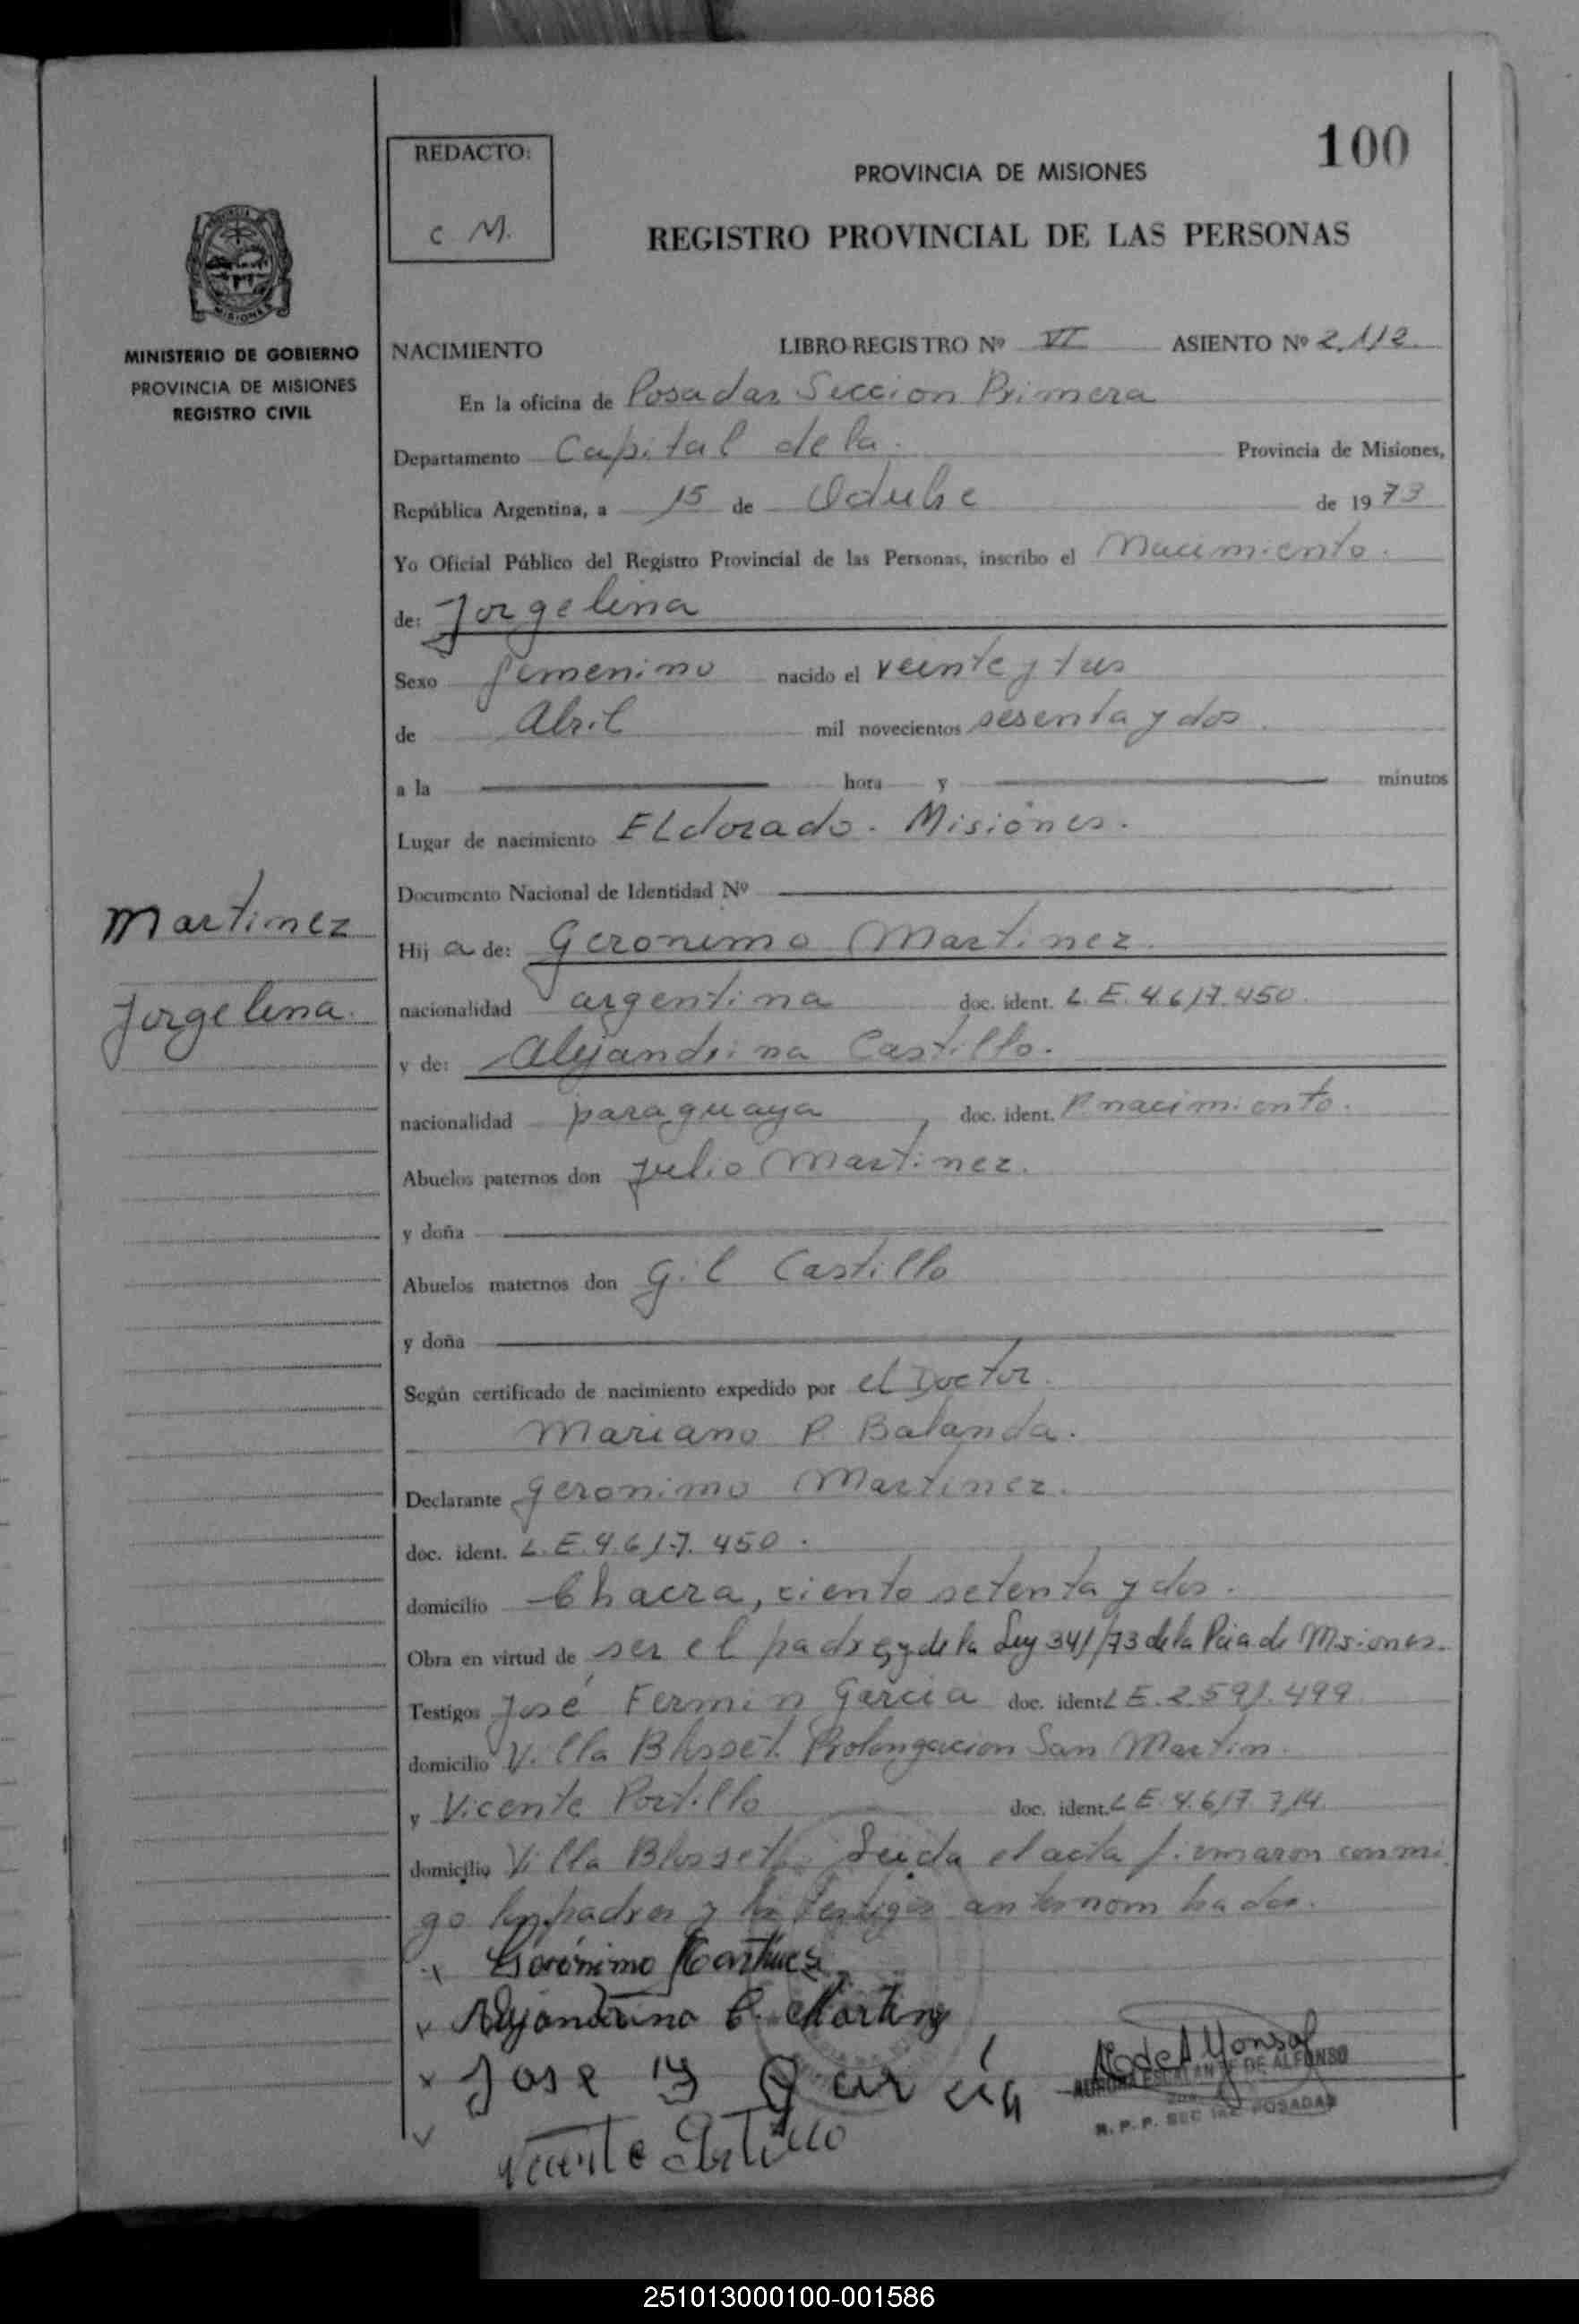 100
REDACTO:
C. M.
PROVINCIA DE MISIONES
REGISTRO PROVINCIAL DE LAS PERSONAS
MISIONES
MINISTERIO DE GOBIERNO
PROVINCIA DE MISIONES
REGISTRO CIVIL
NACIMIENTO LIBRO REGISTRO Nº VI ASIENTO Nº 2.112
En la oficina de Posadas Seccion Primera
Departamento Capital de la. Provincia de Misiones,
República Argentina, a 15 de Octubre de 1973
Yo Oficial Público del Registro Provincial de las Personas, inscribo el Nacimiento.
de: Jorgelina
Sexo femenino nacido el veinte y tres
de Abril mil novecientos sesenta y dos.
a la hora y minutos
Lugar de nacimiento ELdorado. Misiones.
Documento Nacional de Identidad Nº
Martinez
Jorgelina.
Hij a de: Geronimo Martinez.
nacionalidad argentina doc. ident. L.E. 4.617.450.
y de: Alejandrina Castillo.
nacionalidad paraguaya, doc. ident. P nacimiento.
Abuelos paternos don Julio Martinez.
y doña
Abuelos maternos don Gil Castillo
y doña
Según certificado de nacimiento expedido por el Doctor.
Mariano P. Balanda.
Declarante Geronimo Martinez.
doc. ident. L.E. 4.617.450.
domicilio Chacra, ciento setenta y dos.
Obra en virtud de ser el padre, y de la Ley 341/73 de la Pcia de Misiones.
Testigos José Fermin Garcia doc. ident. L E. 2.591.499
domicilio Villa Blosset. Prolongacion San Martin.
y Vicente Portillo doc. ident. L E. 4.617.714.
domicilio Villa Blosset. Leida el acta firmaron conmi
go los padres y los testigos antes nombrados.
x Gerónimo Martinez
x Alejandrina C. Martinez
x Jose F Garcia
x Vicente Portillo
A. de Alfonso
AURORA ESCALANTE DE ALFONSO
R. P. P. SEC 1RA POSADAS
251013000100-001586